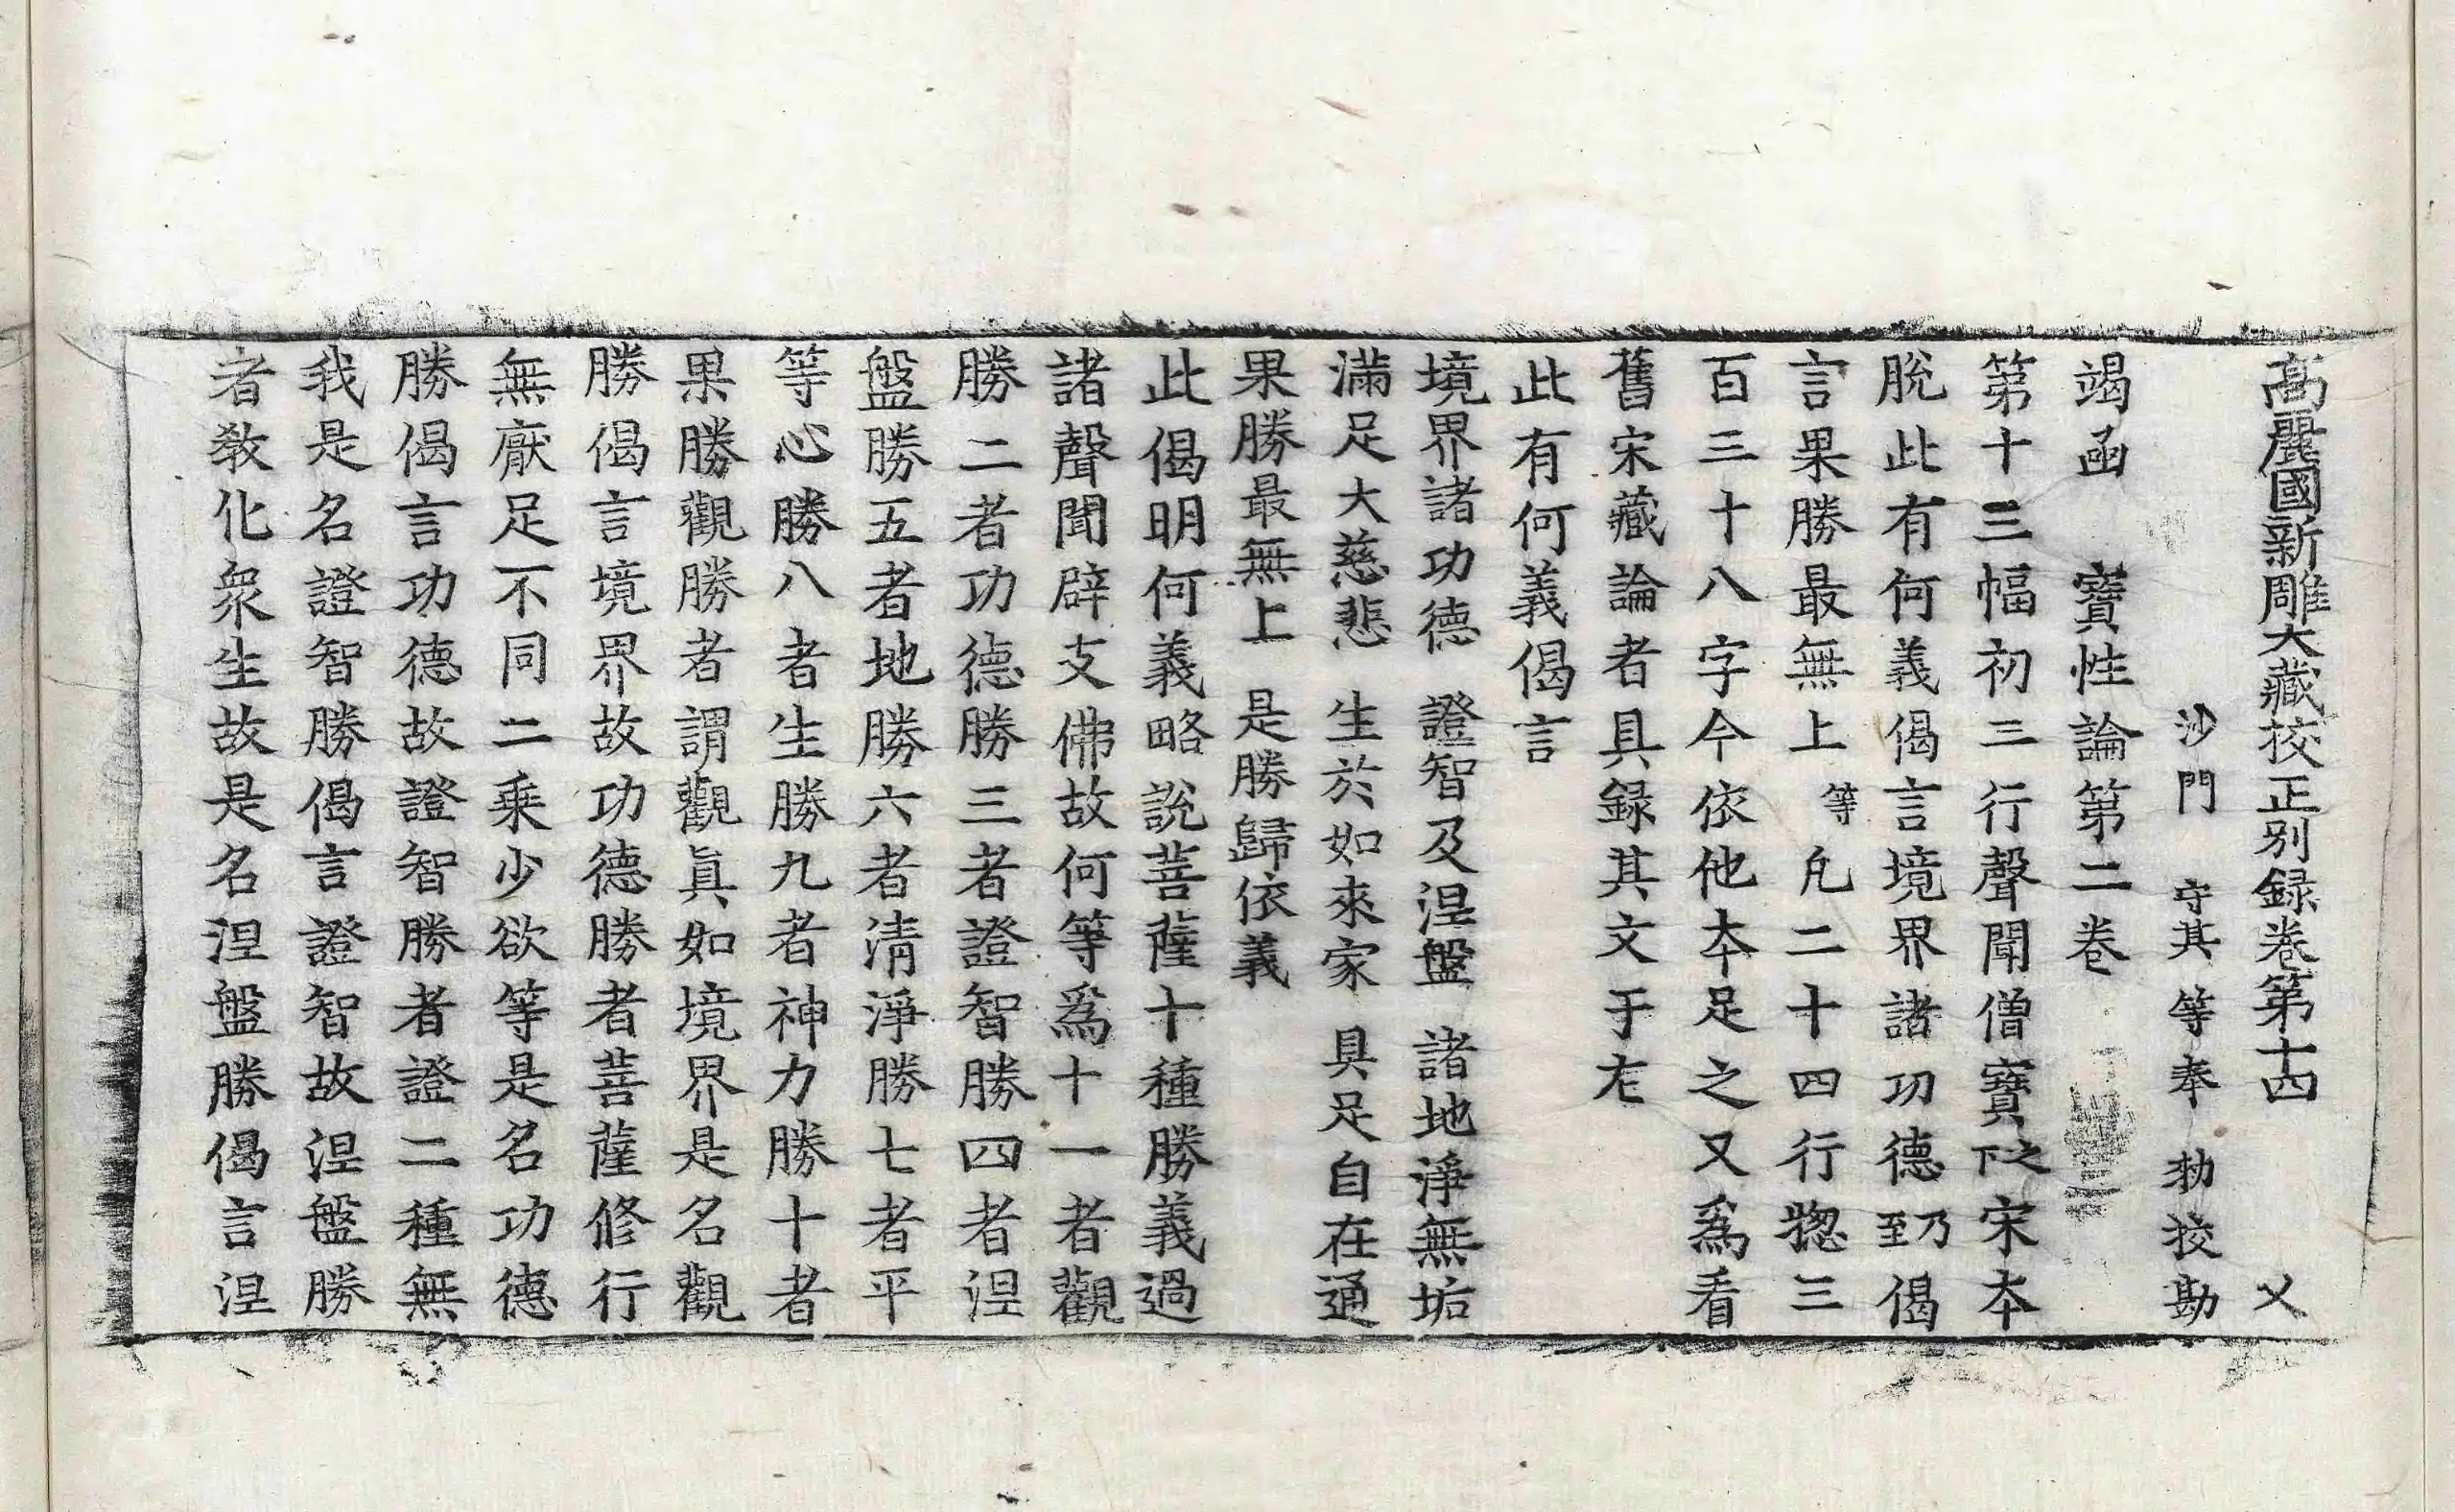 高麗國新雕大藏校正別録卷第十四 乂
沙門 守其 等奉 勑挍勘
竭函 寶性論第二卷
第十三幅初三行聲聞僧寶之下宋本
脫此有何義偈言境界諸功德乃至偈
言果勝最無上等凡二十四行揔三
百三十八字今依他本足之又爲看
舊宋藏論者具録其文于左
此有何義偈言
境界諸功德 證智及涅盤 諸地淨無垢
滿足大慈悲 生於如來家 具足自在通
果勝最無上 是勝歸依義
此偈明何義略説菩薩十種勝義過
諸聲聞辟支佛故何等爲十一者觀
勝二者功德勝三者證智勝四者涅
盤勝五者地勝六者清淨勝七者平
等心勝八者生勝九者神力勝十者
果勝觀勝者謂觀眞如境界是名觀
勝偈言境界故功德勝者菩薩修行
無厭足不同二乘少欲等是名功德
勝偈言功德故證智勝者證二種無
我是名證智勝偈言證智故涅盤勝
者敎化衆生故是名涅盤勝偈言涅